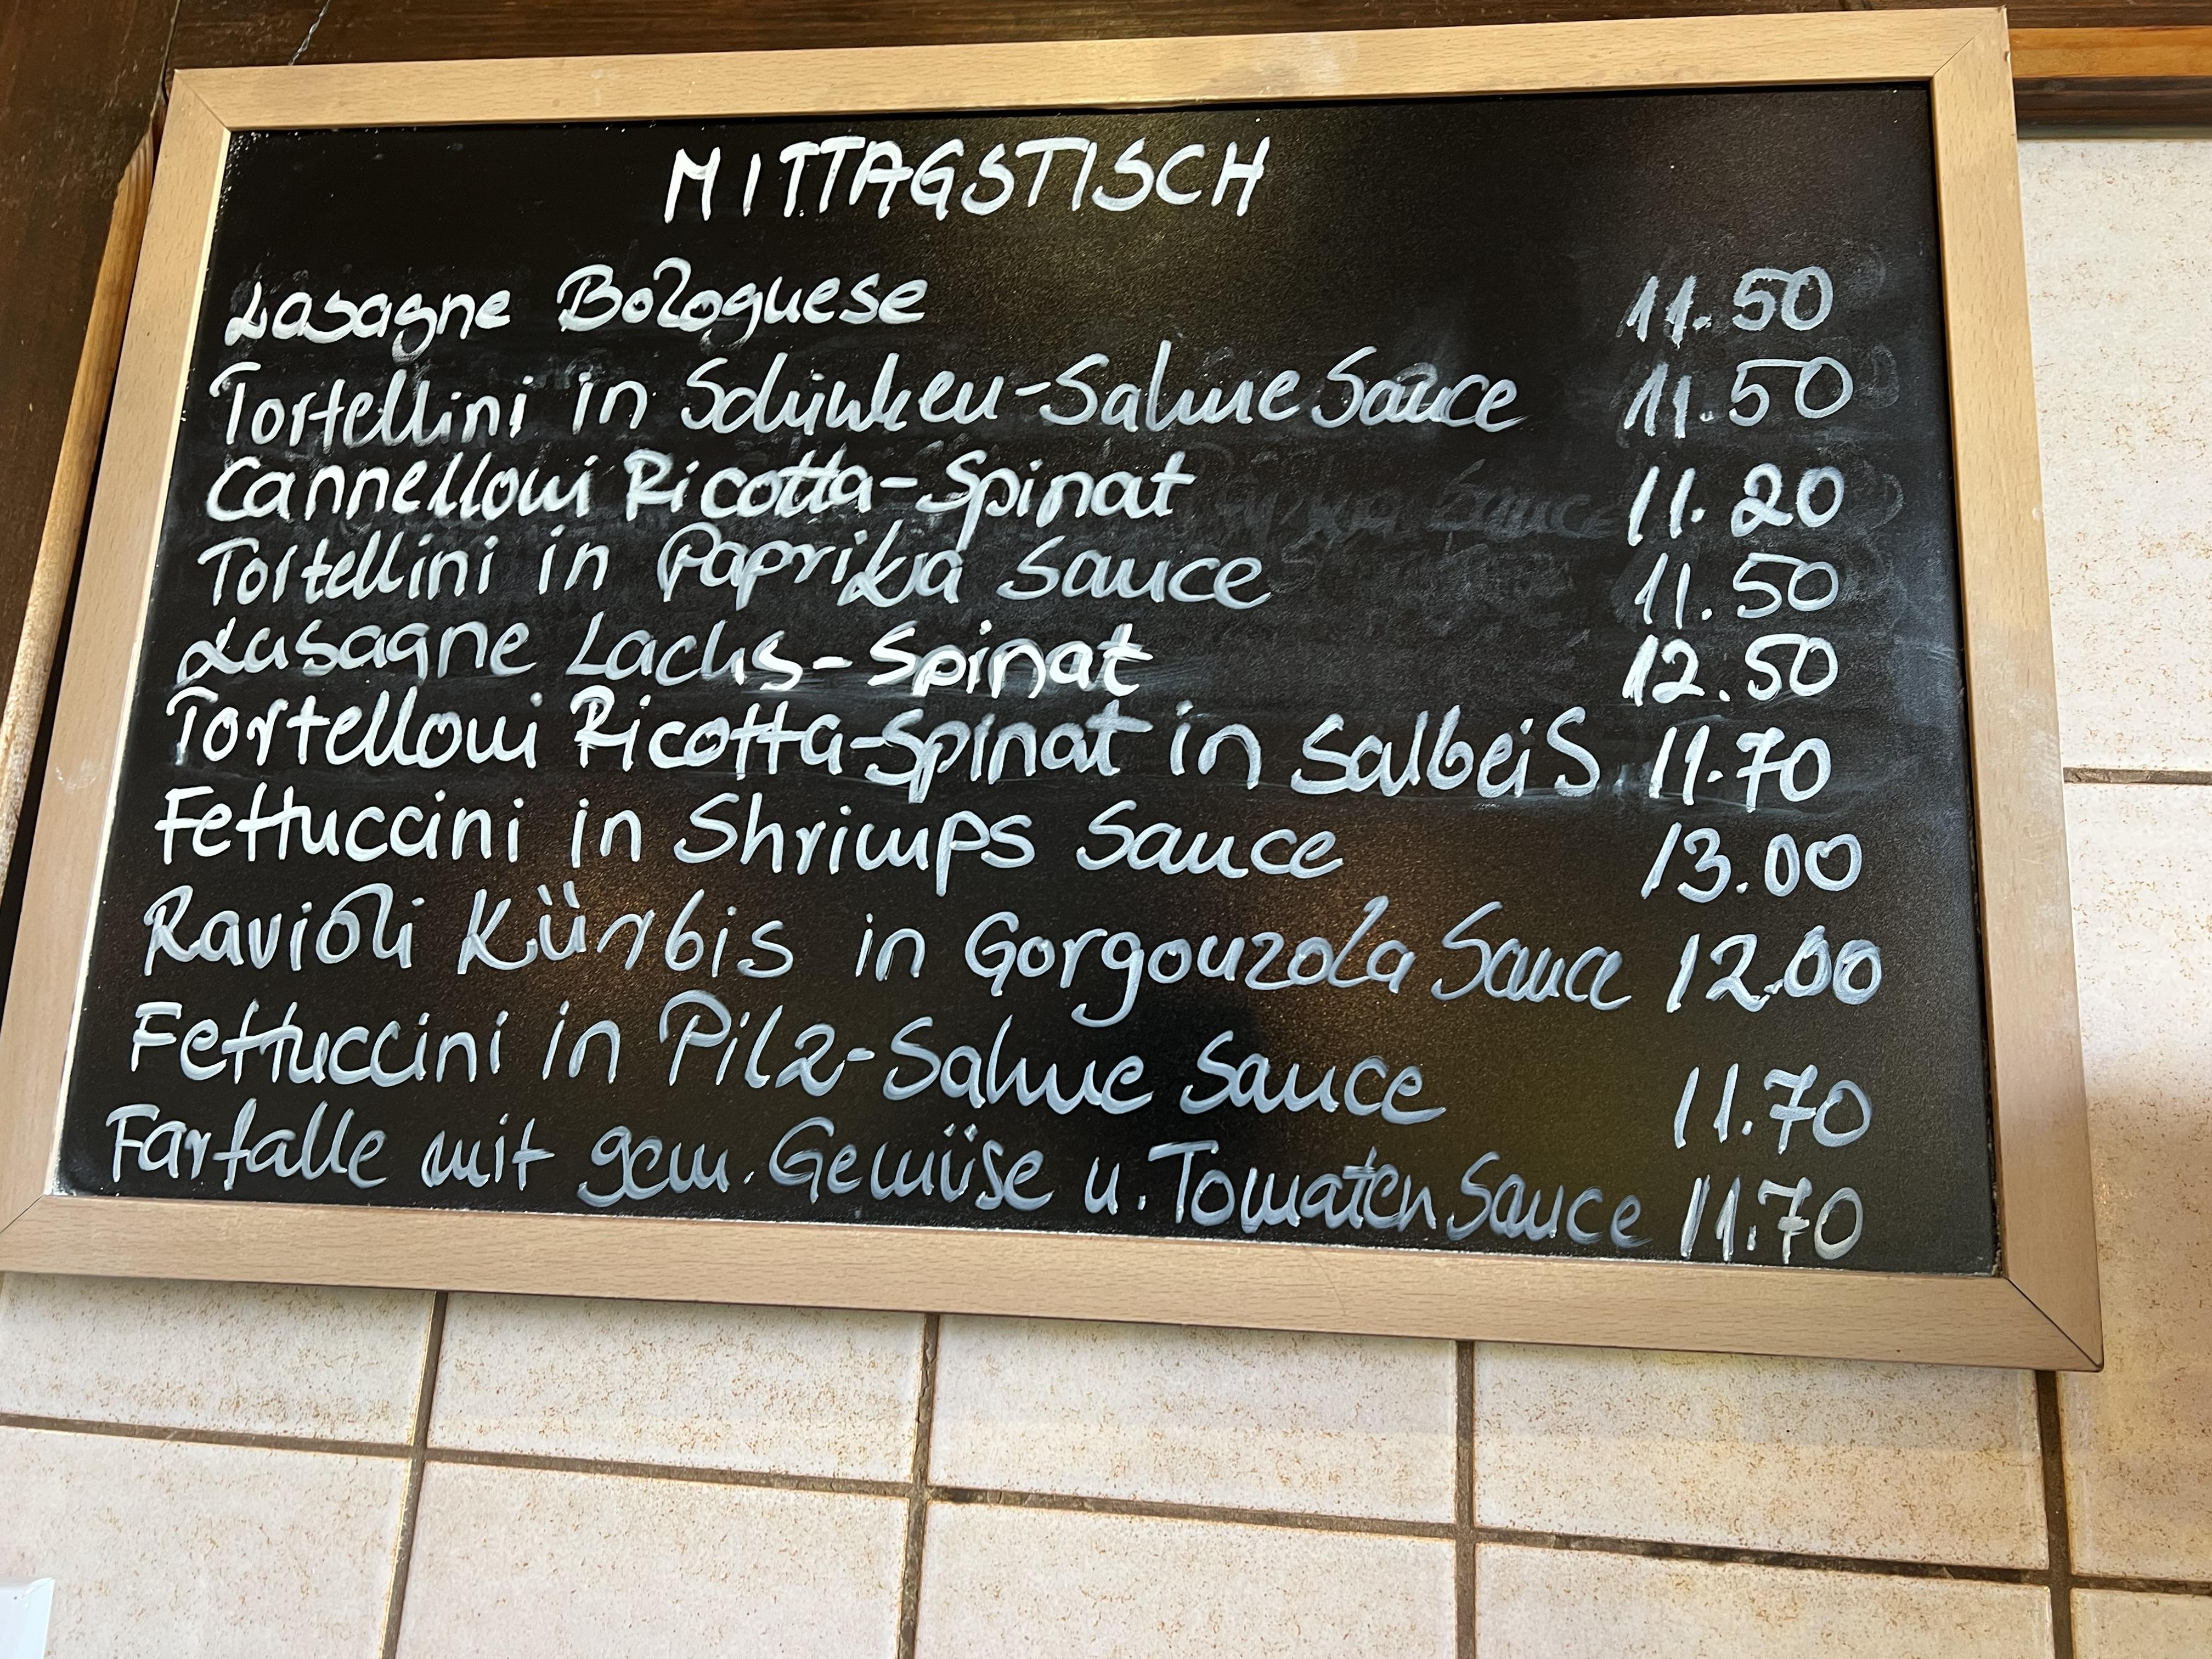 MITTAGSTISCH
Lasagne Bolognese 11.50
Tortellini in Schinken-Sahne Sauce 11.50
Cannelloni Ricotta-Spinat 11.20
Tortellini in Paprika Sauce 11.50
Lasagne Lachs-Spinat 12.50
Tortelloni Ricotta-Spinat in Salbei S. 11.70
Fettuccini in Shrimps Sauce 13.00
Ravioli Kürbis in Gorgonzola Sauce 12.00
Fettuccini in Pilz-Sahne Sauce 11.70
Farfalle mit gem. Gemüse u. Tomaten Sauce 11.70